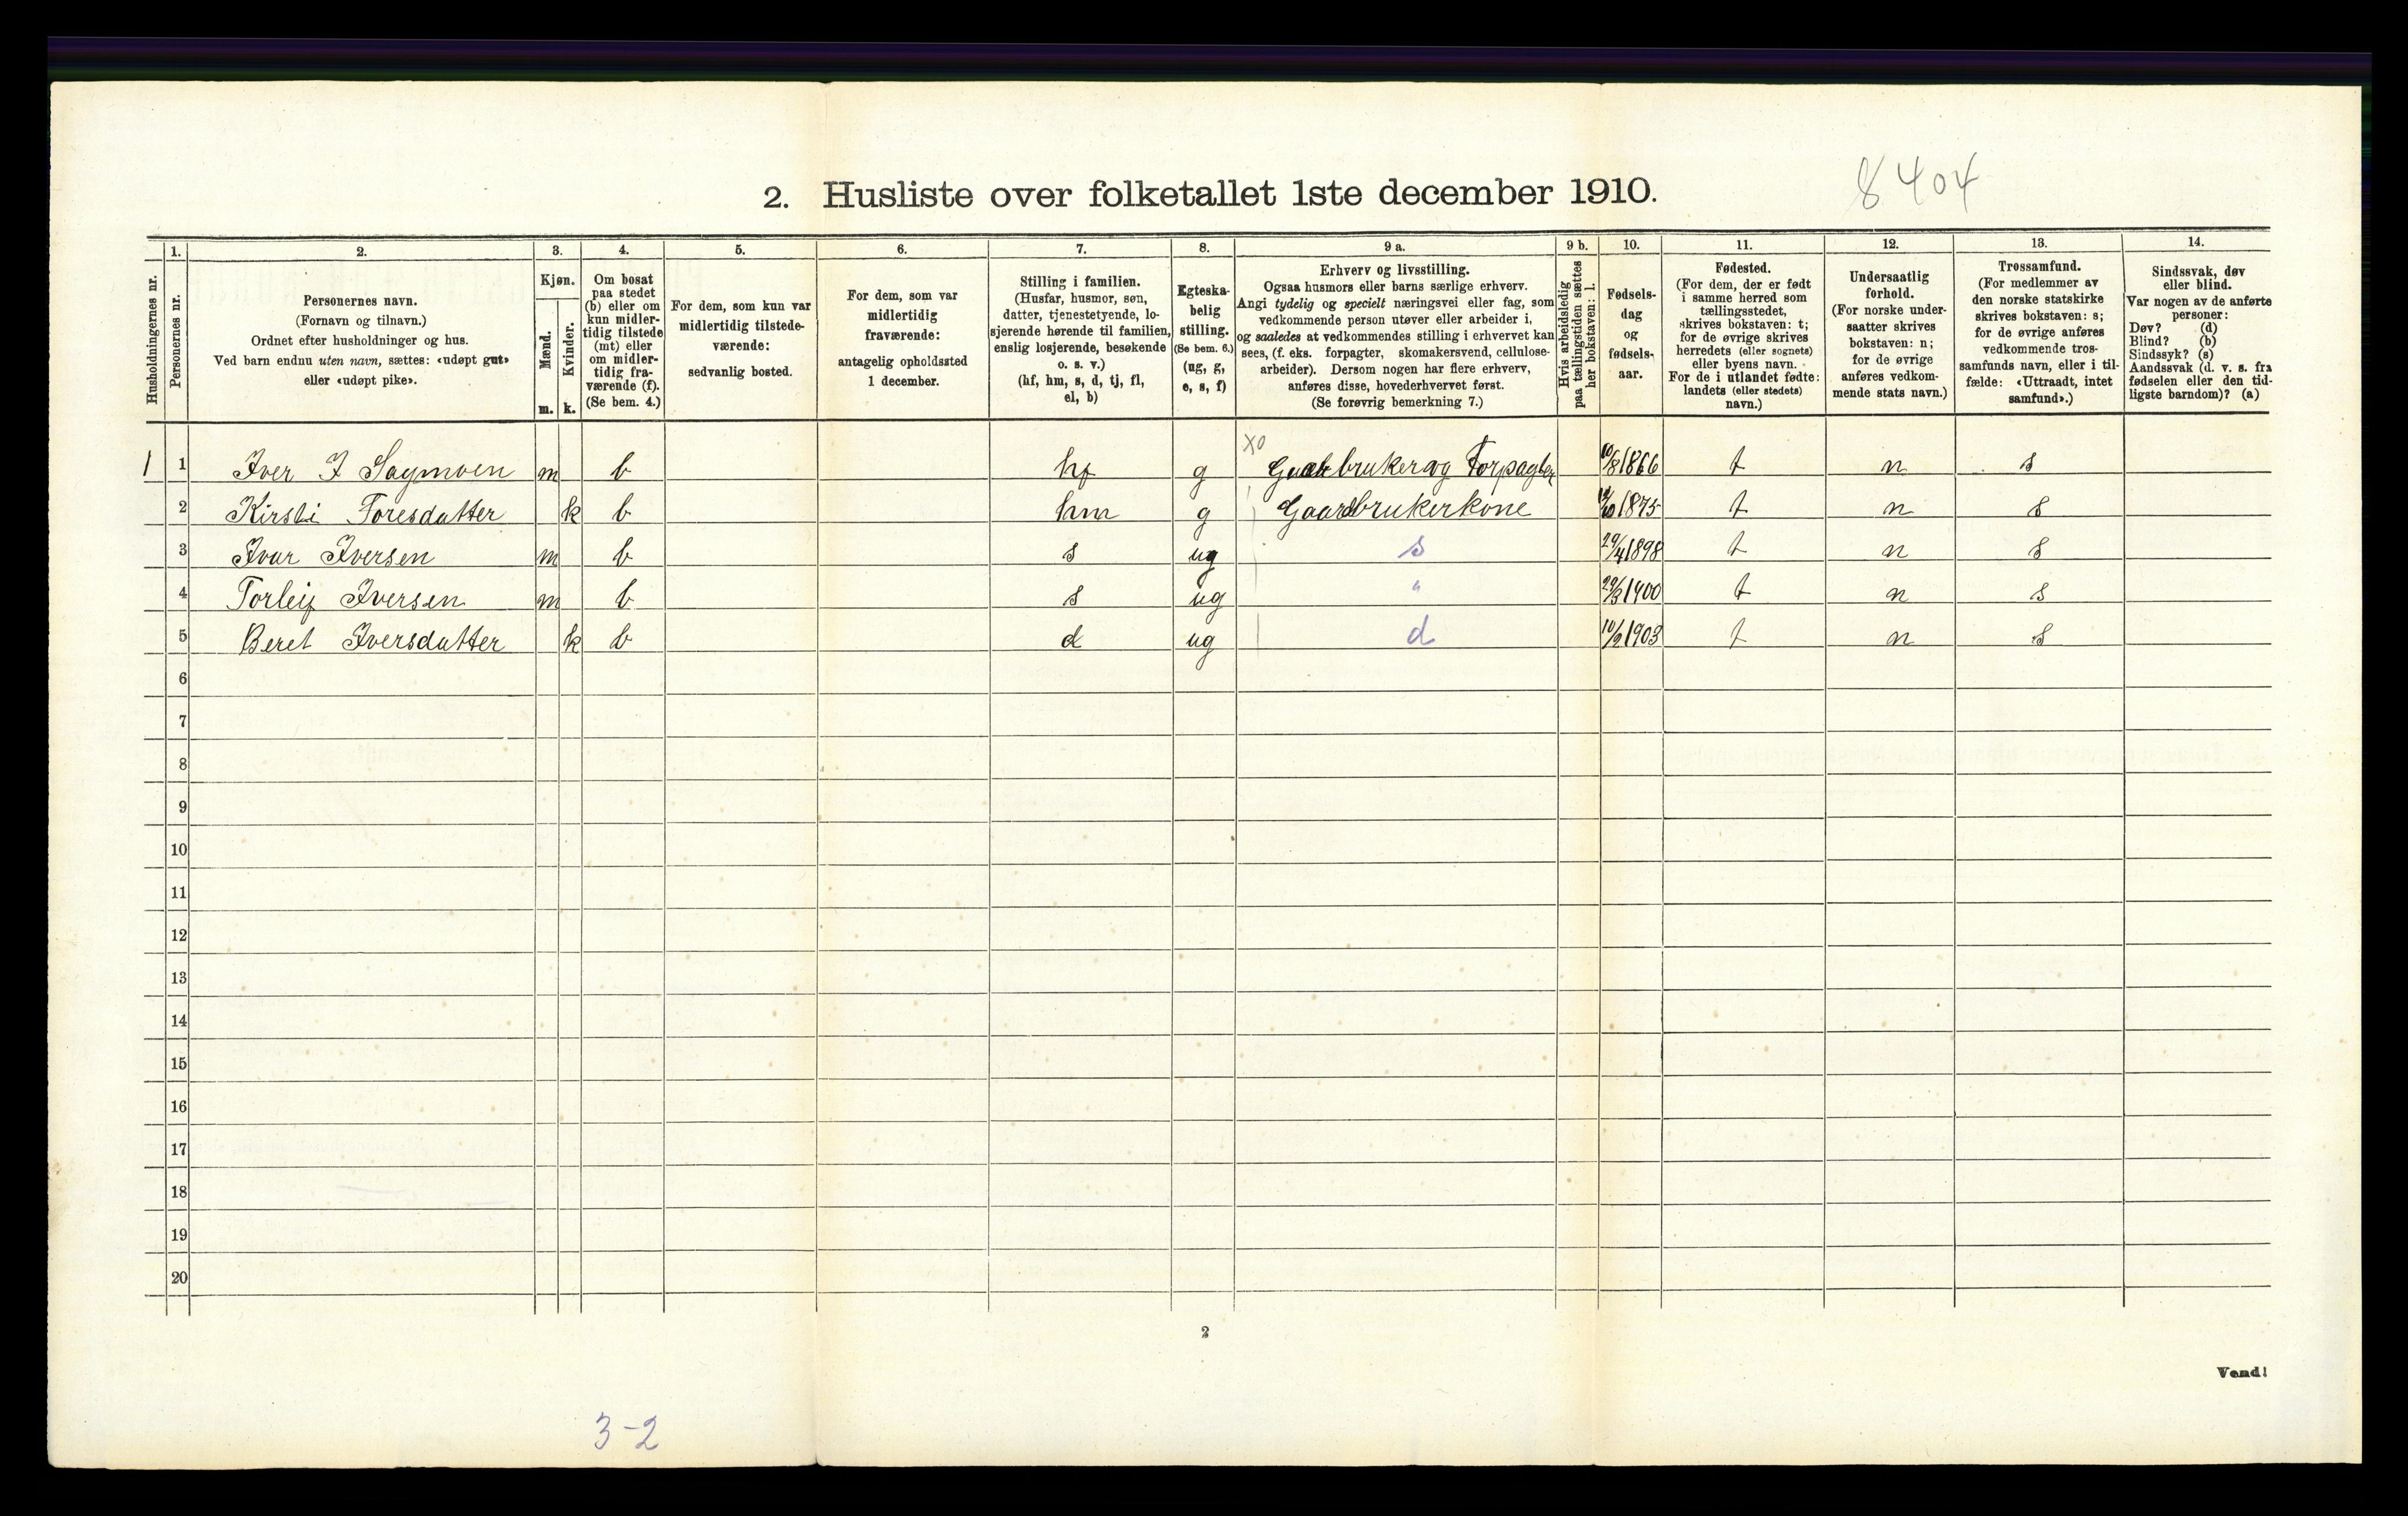 8404
2. Husliste over folketallet 1ste december 1910.
Husholdningernes nr.
1.
Personernes nr.
2.
Personernes navn.
(Fornavn og tilnavn.)
Ordnet efter husholdninger og hus.
Ved barn endnu uten navn, sættes: «udøpt gut»
eller «udøpt pike».
3.
Kjøn.
Mænd.
Kvinder.
m. k.
4.
Om bosat
paa stedet
(b) eller om
kun midler-
tidig tilstede
(mt) eller
om midler-
tidig fra-
værende (f).
(Se bem. 4.)
5.
For dem, som kun var
midlertidig tilstede-
værende:
sedvanlig bosted.
6.
For dem, som var
midlertidig
fraværende:
antagelig opholdssted
1 december.
7.
Stilling i familien.
(Husfar, husmor, søn,
datter, tjenestetyende, lo-
sjerende hørende til familien,
enslig losjerende, besøkende
o. s. v.)
(hf, hm, s, d, tj, fl,
el, b)
8.
Egteska-
belig
stilling.
(Se bem. 6.)
(ug, g,
e, s, f)
9 a.
Erhverv og livsstilling.
Ogsaa husmors eller barns særlige erhverv.
Angi tydelig og specielt næringsvei eller fag, som
vedkommende person utøver eller arbeider i,
og saaledes at vedkommendes stilling i erhvervet kan
sees, (f. eks. forpagter, skomakersvend, cellulose-
arbeider). Dersom nogen har flere erhverv,
anføres disse, hovederhvervet først.
(Se forøvrig bemerkning 7.)
9 b.
Hvis arbeidsledig
paa tællingstiden sættes
her bokstaven: l.
10.
Fødsels-
dag
og
fødsels-
aar.
11.
Fødested.
(For dem, der er født
i samme herred som
tællingsstedet,
skrives bokstaven: t;
for de øvrige skrives
herredets (eller sognets)
eller byens navn.
For de i utlandet fødte:
landets (eller stedets)
navn.)
12.
Undersaatlig
forhold.
(For norske under-
saatter skrives
bokstaven: n;
for de øvrige
anføres vedkom-
mende stats navn.)
13.
Trossamfund.
(For medlemmer av
den norske statskirke
skrives bokstaven: s;
for de øvrige anføres
vedkommende tros-
samfunds navn, eller i til-
fælde: «Uttraadt, intet
samfund».)
14.
Sindssvak, døv
eller blind.
Var nogen av de anførte
personer:
Døv? (d)
Blind? (b)
Sindssyk? (s)
Aandssvak (d. v. s. fra
fødselen eller den tid-
ligste barndom)? (a)
X0
1 1 Iver I Sagmoen m b hf g Gaardbruker og Forpagter 10/8 1866 t n s
2 Kirsti Toresdatter k b hm g Gaardbrukerkone 1875 t n s
3 Ivar Iversen m b s ug s 29/4 1898 t n s
4 Torleif Iversen m b s ug " 29/3 1900 t n s
5 Beret Iversdatter k b d ug d 10/2 1903 t n s
6
7
8
9
10
11
12
13
14
15
16
17
18
19
20
2
Vend!
3-2